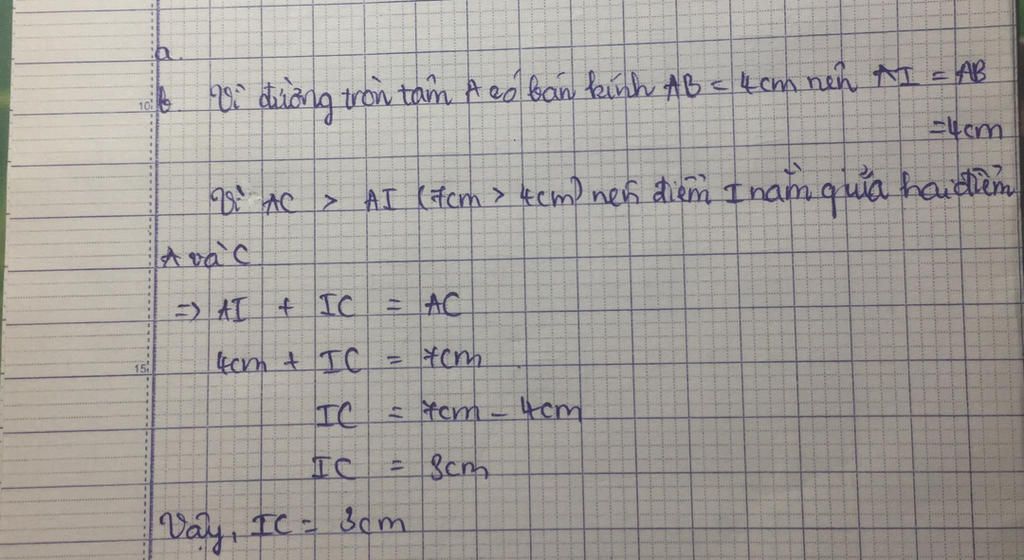 a.
10 b Vì đường tròn tâm A có bán kính AB = 4cm nên AI = AB
= 4cm
Vì AC > AI (7cm > 4cm) nên điểm I nằm giữa hai điểm
A và C
=> AI + IC = AC
15 4cm + IC = 7cm
IC = 7cm - 4cm
IC = 3cm
Vậy, IC = 3cm